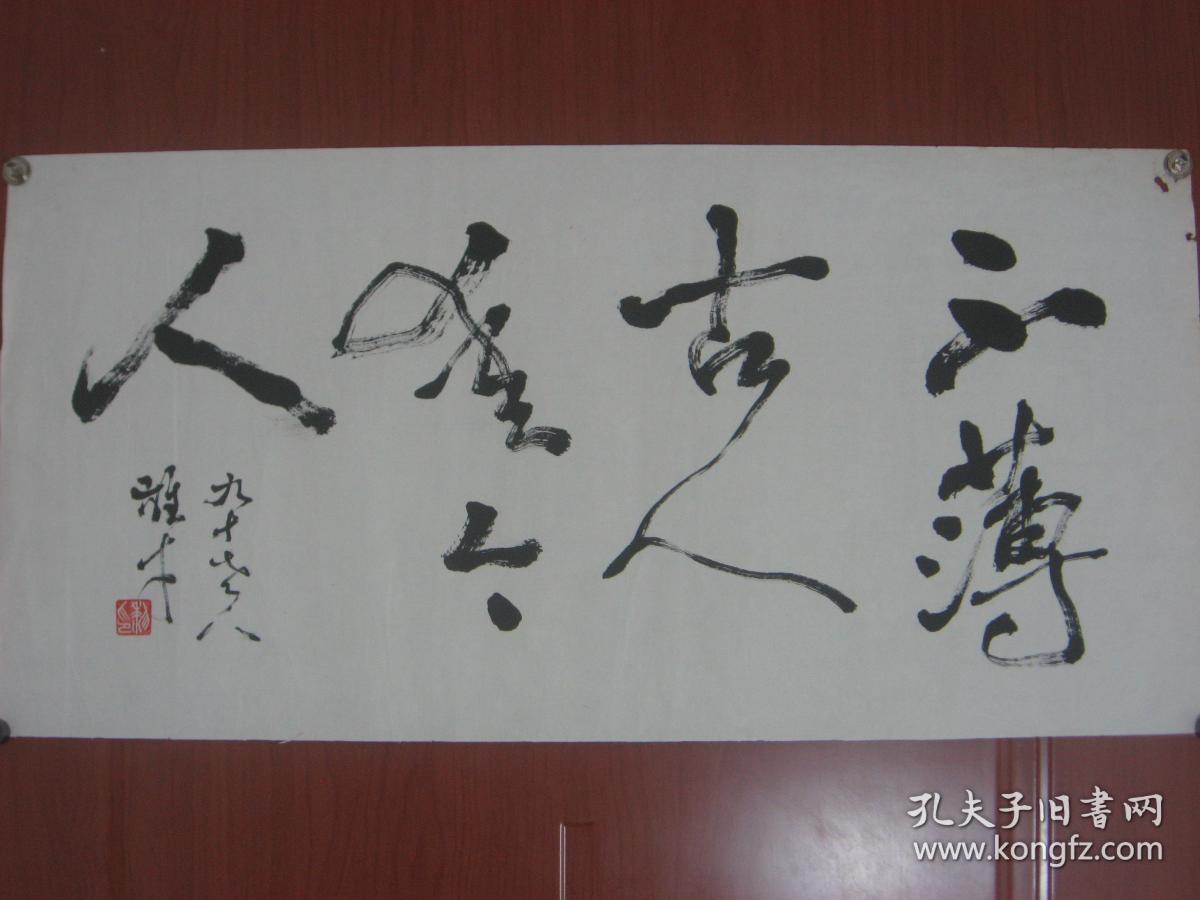 不薄
古人
愛今
人
九十
孔夫子旧書网
www.kongfz.com